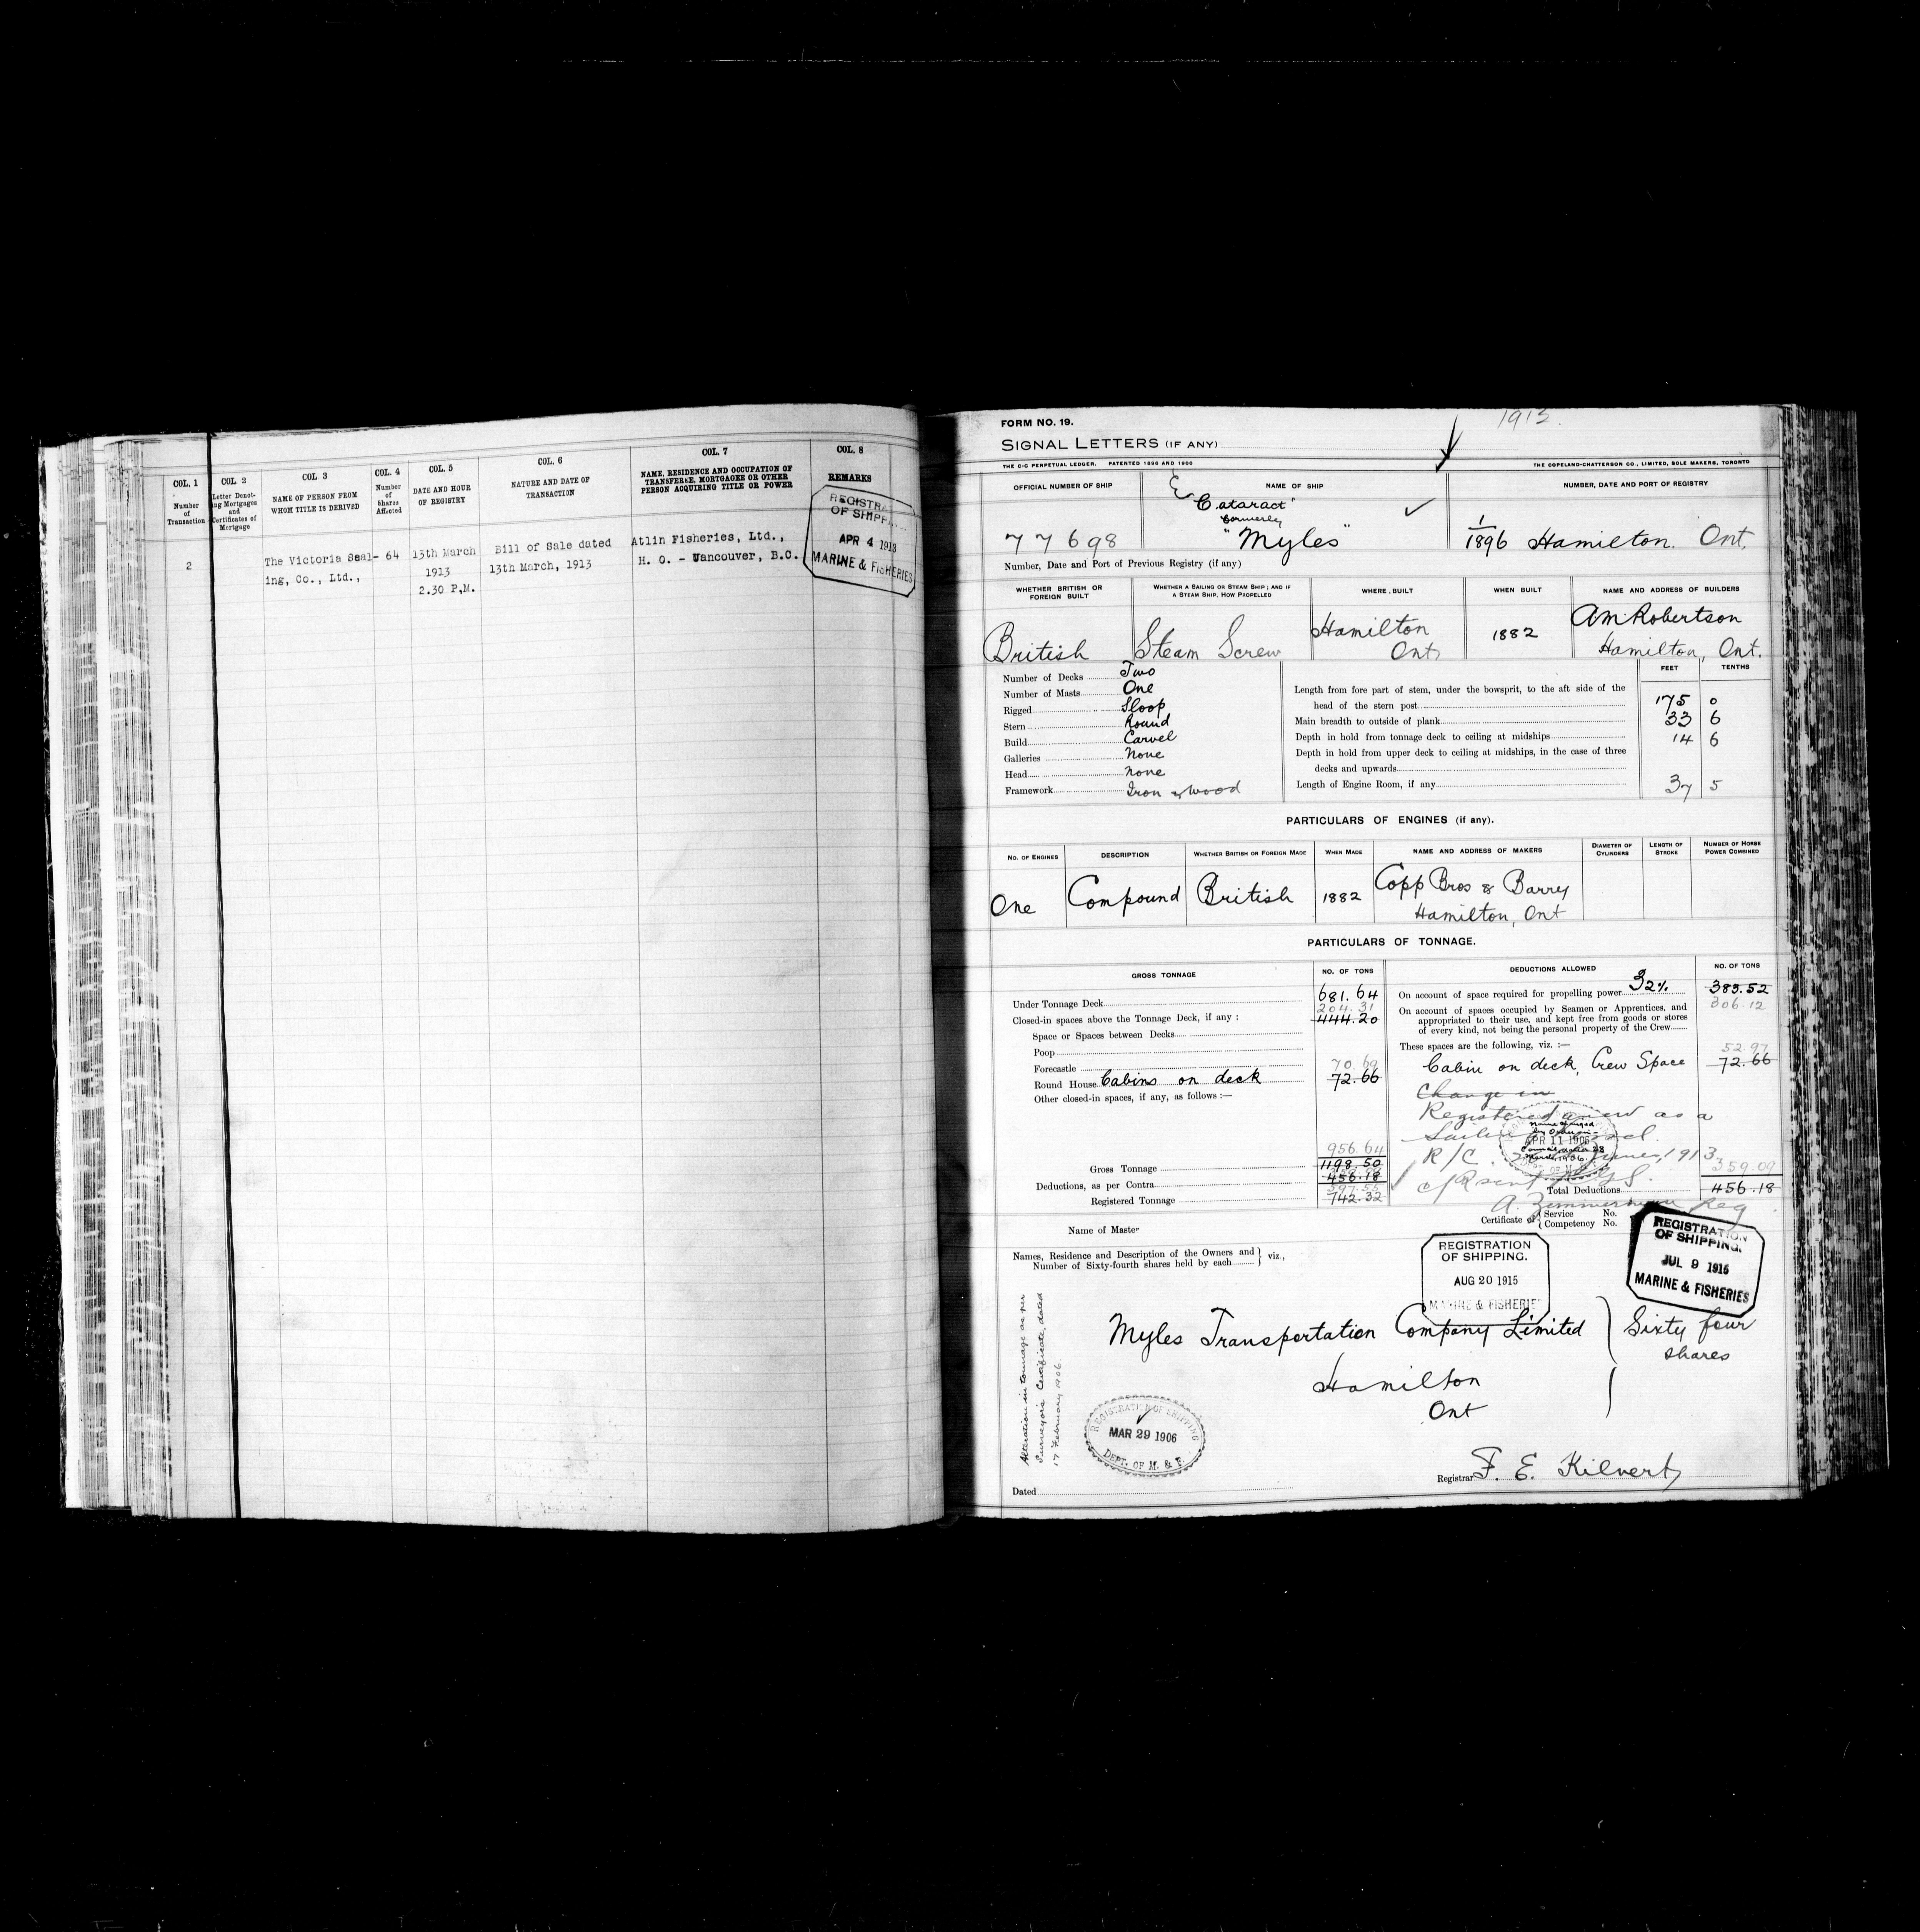 COL. 1
Number
of
Transaction
COL. 2
Letter Denot-
ing Mortgages
and
Certificates of
Mortgage
COL. 3
NAME OF PERSON FROM
WHOM TITLE IS DERIVED
COL. 4
Number
of
Shares
Affected
COL. 5
DATE AND HOUR
OF REGISTRY
COL. 6
NATURE AND DATE OF
TRANSACTION
COL. 7
NAME, RESIDENCE AND OCCUPATION OF
TRANSFEREE, MORTGAGEE OR OTHER
PERSON ACQUIRING TITLE OR POWER
COL. 8
REMARKS
2
The Victoria Seal-
ing, Co., Ltd.,
64
13th March
1913
2.30 P.M.
Bill of Sale dated
13th March, 1913
Atlin Fisheries, Ltd.,
H. O. - Vancouver, B.C.
OF SHIPP
APR 4 1913
MARINE & FISHERIES
FORM NO. 19.
1913.
SIGNAL LETTERS (IF ANY)
THE C-C PERPETUAL LEDGER. PATENTED 1896 AND 1900
THE COPELAND-CHATTERSON CO., LIMITED, SOLE MAKERS, TORONTO
OFFICIAL NUMBER OF SHIP
NAME OF SHIP
NUMBER, DATE AND PORT OF REGISTRY
77698
"Cataract"
formerly
"Myles"
1/1896 Hamilton. Ont.
Number, Date and Port of Previous Registry (if any)
WHETHER BRITISH OR
FOREIGN BUILT
WHETHER A SAILING OR STEAM SHIP; AND IF
A STEAM SHIP, HOW PROPELLED
WHERE BUILT
WHEN BUILT
NAME AND ADDRESS OF BUILDERS
British
Steam Screw
Hamilton
Ont
1882
AM Robertson
Hamilton, Ont.
Number of Decks Two
Number of Masts One
Rigged Sloop
Stern Round
Build Carvel
Galleries None
Head None
Framework Iron & Wood
FEET TENTHS
Length from fore part of stem, under the bowsprit, to the aft side of the
head of the stern post 175 0
Main breadth to outside of plank 33 6
Depth in hold from tonnage deck to ceiling at midships 14 6
Depth in hold from upper deck to ceiling at midships, in the case of three
decks and upwards
Length of Engine Room, if any 37 5
PARTICULARS OF ENGINES (if any).
NO. OF ENGINES
DESCRIPTION
WHETHER BRITISH OR FOREIGN MADE
WHEN MADE
NAME AND ADDRESS OF MAKERS
DIAMETER OF
CYLINDERS
LENGTH OF
STROKE
NUMBER OF HORSE
POWER COMBINED
One
Compound
British
1882
Copp Bros & Barry
Hamilton, Ont
PARTICULARS OF TONNAGE.
GROSS TONNAGE
NO. OF TONS
Under Tonnage Deck 681.64
204.31
Closed-in spaces above the Tonnage Deck, if any : 444.20
Space or Spaces between Decks
Poop
Forecastle 70.69
Round House Cabins on deck 72.66
Other closed-in spaces, if any, as follows :—
956.64
Gross Tonnage 1198.50
Deductions, as per Contra 456.18
Registered Tonnage 742.32
DEDUCTIONS ALLOWED
NO. OF TONS
On account of space required for propelling power 32% 383.52
306.12
On account of spaces occupied by Seamen or Apprentices, and
appropriated to their use, and kept free from goods or stores
of every kind, not being the personal property of the Crew
These spaces are the following, viz. :— 52.97
Cabin on deck, Crew Space 72.66
Change in
Registered anew as a
R/C 1913
APR 11 1906
359.09
Total Deductions 456.18
A. Zimmerman Reg
Name of Master
Certificate of { Service No.
Competency No.
Names, Residence and Description of the Owners and } viz.,
Number of Sixty-fourth shares held by each
REGISTRATION
OF SHIPPING.
AUG 20 1915
MARINE & FISHERIES
REGISTRATION
OF SHIPPING.
JUL 9 1915
MARINE & FISHERIES
Alteration in tonnage as per
Surveyor's Certificate, dated
17 February 1906
Myles Transportation Company Limited
Hamilton
Ont
Sixty four
shares
REGISTRATION OF SHIPPING
MAR 29 1906
DEPT. OF M. & F.
Registrar F. E. Kilvert
Dated